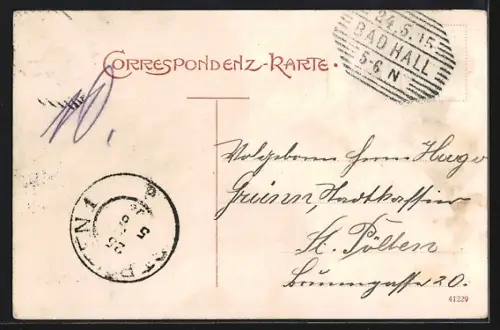 CORRESPONDENZ-KARTE.
24.5.15
BAD HALL
5-6 N
10.
Wolgeboren Herrn Hugo
Grünn, Stadtkassier
St. Pölten
Brunngasse 20.
41229